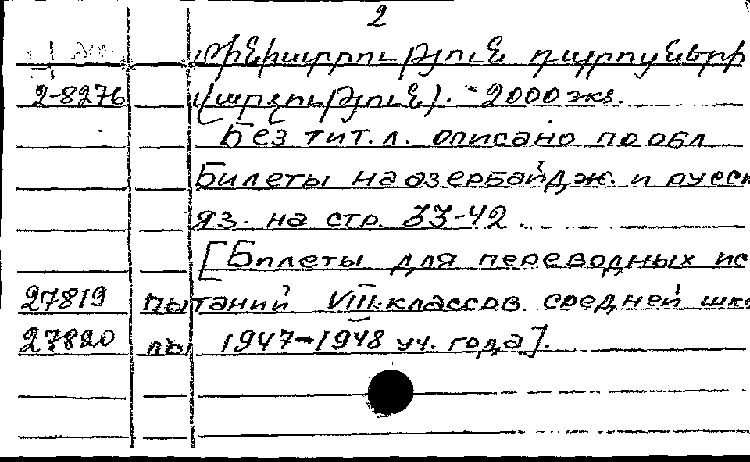 2
մինիստրություն դպրոցների
2-8276 վարչություն). - 2000 экз.
Без тит. л. описано по обл
Билеты на азербайдж. и русск
яз. на стр. 33-42.
[Билеты для переводных ис
27819 пытаний VIII классов средней шко
27820 лы 1947-1948 уч. года].